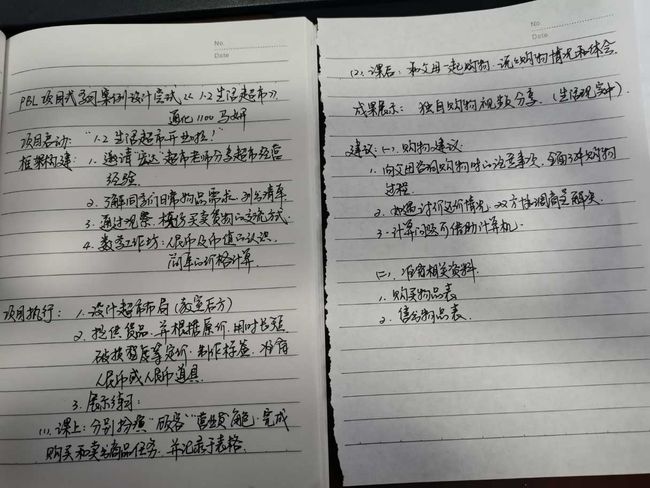 No.
Date
PBL项目式学习案例设计尝试《1.2生活超市》
通化1100马妍
项目启动:"1.2生活超市开业啦!"
框架构建:1.邀请"宏达"超市老师分享超市经营
经验.
2.了解同学们日常物品需求.列出清单
3.通过观察.模仿买卖货物の交流方式.
4.数学工作坊:人民币及币值の认识.
简单の价格计算.
项目执行:1.设计超市布局(教室后方)
2.提供货品.并根据原价.用时长短
破损程度等定价.制作标签.准备
人民币或人民币道具
3.展示练习:
(1).课上:分别扮演"顾客""营业员"角色.完成
购买和卖出商品任务.并记录于表格.
No.
Date
(2).课后:和父母一起购物.说说购物情况和体会.
成果展示:独自购物视频分享.(生活现实中).
建议:(一).购物建议:
1.向父母咨询购物时の注意事项.全面了解购物
过程
2.如遇讨价还价情况.双方协调商量解决.
3.计算问题可借助计算机.
(二).准备相关资料.
1.购买物品表
2.售出物品表.